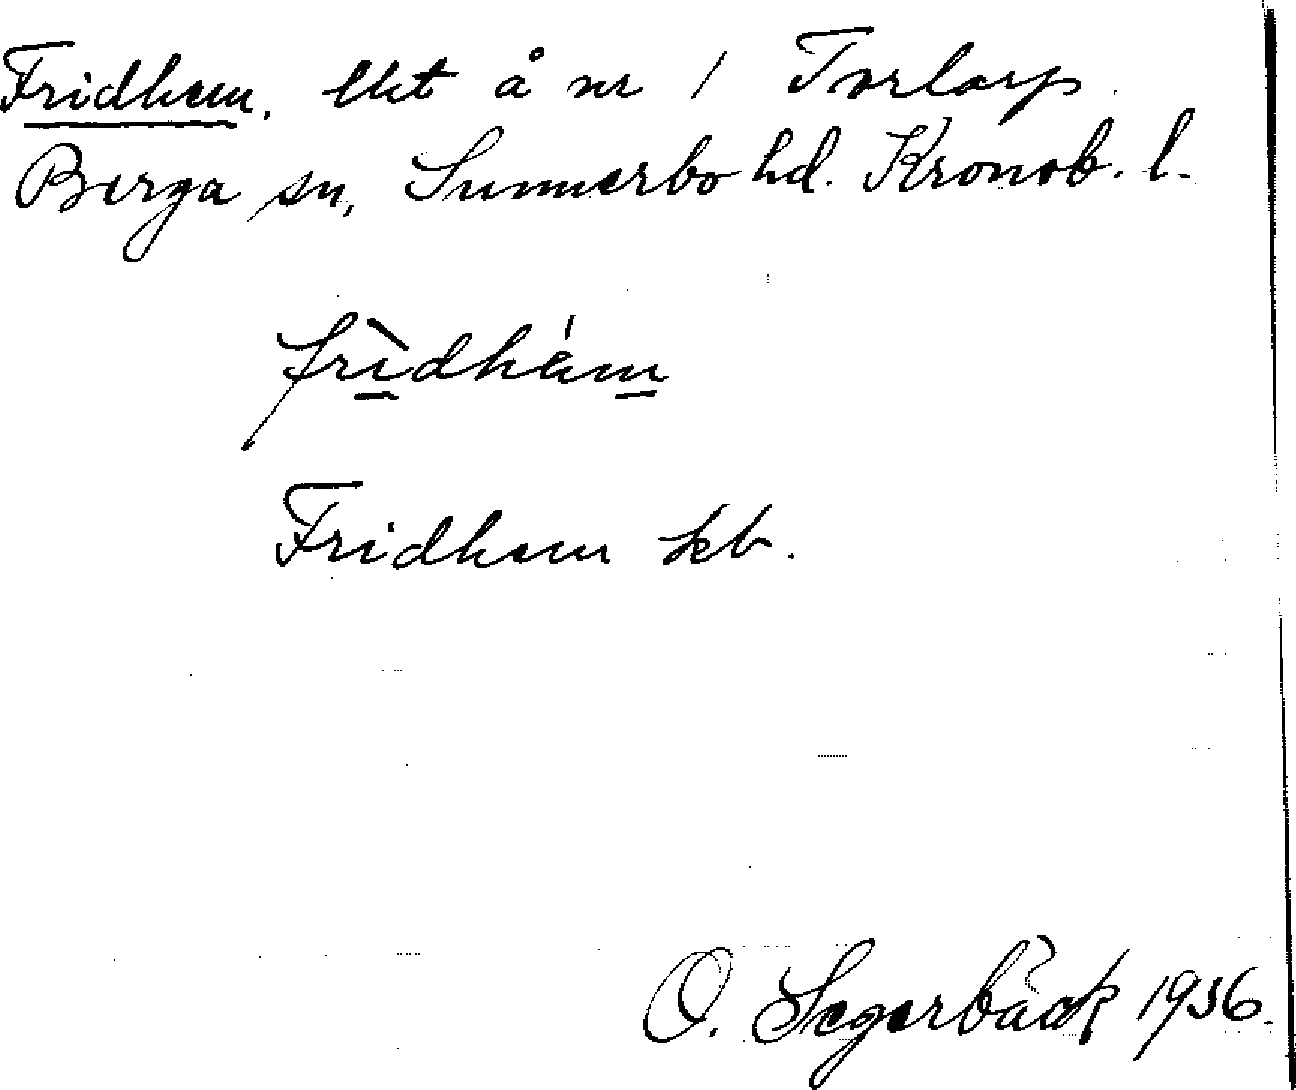 Fridhem, lht å nr 1 Torlarp.
Berga sn, Sunnerbo hd. Kronob. l.
frìdhám
Fridhem kb.
O. Segerbäck 1936.